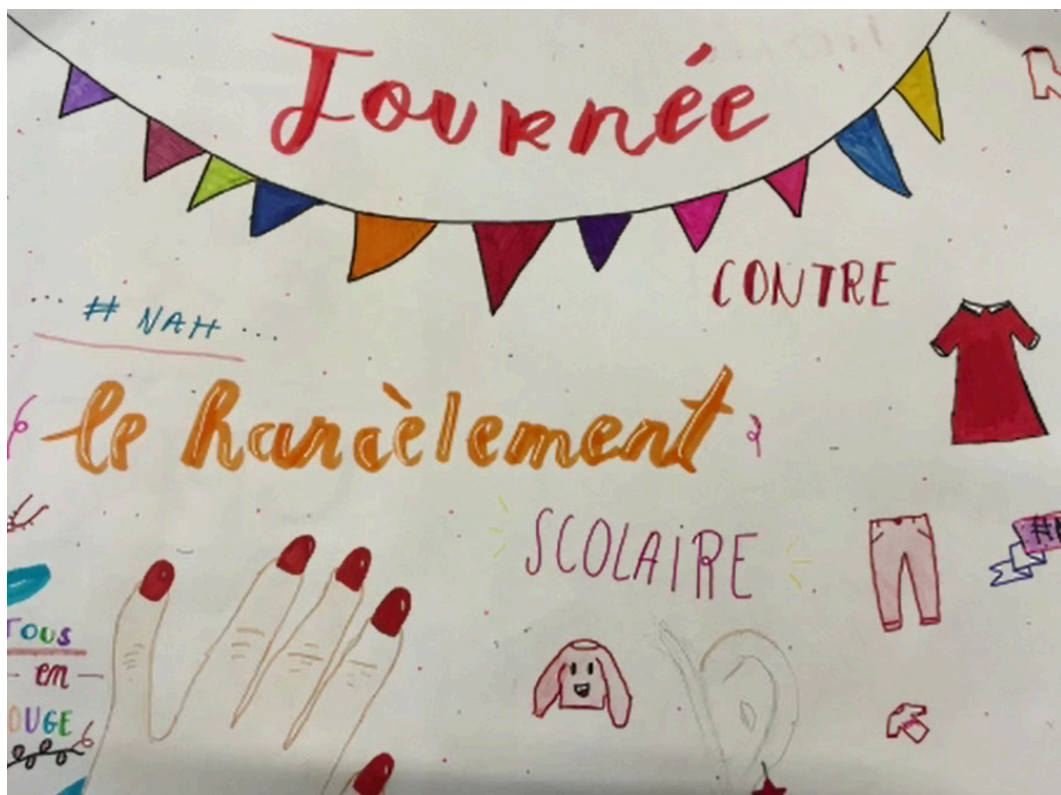 Journée
CONTRE
... # NAH ...
le harcèlement
SCOLAIRE
TOUS
en
OUGE